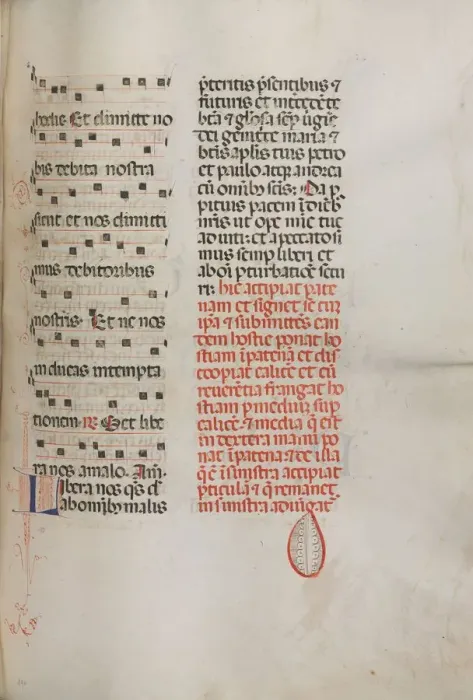 hodie. Et dimitte no
bis debita nostra
sicut et nos dimitti
mus debitoribus
nostris. Et ne nos
inducas intempta
tionem. R. Set libe
ra nos amalo. Am.
Libera nos qs d
ab omnib malis
pteritis psentibus ⁊
futuris et intercedete
bta ⁊ gliosa semp virgie
dei genitrice maria ⁊
btis aplis tuis petro
et paulo atqz andrea
cu omnib scis: Da p
pitius pacem i dieb
nris ut ope mie tue
adiuti: et a peccato si
mus semp liberi et
ab oi pturbatioe secu
ri: hic accipiat pate
nam et signet se cu
ipa ⁊ submittes ean
dem hostie ponat ho
stiam i patena et dis
cooptat calice et cu
reuerentia frangat ho
stiam p mediu sup
calice. ⁊ media q est
in dextera manu po
nat i patena ⁊ de illa
q e i sinistra accipiat
pticula ⁊ q remanet
in sinistra adiugat